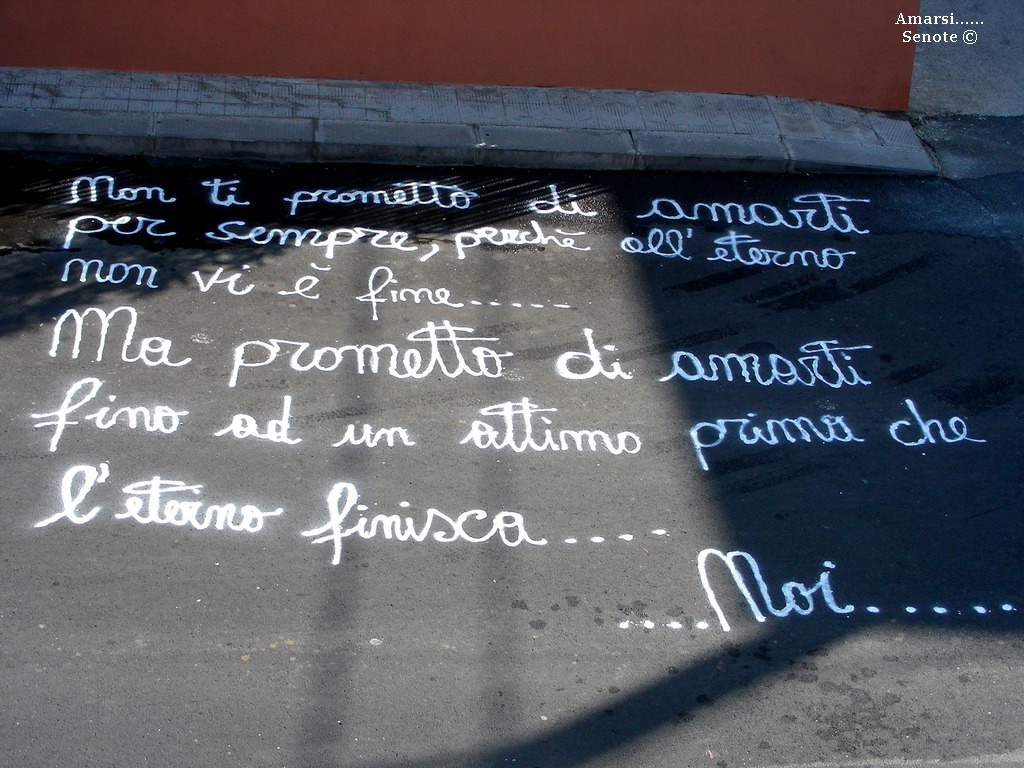 Amarsi......
Senote ©
Non ti prometto di amarti
per sempre, perchè all'eterno
non vi è fine......
Ma prometto di amarti
fino ad un attimo prima che
l'eterno finisca.....
....Noi.......